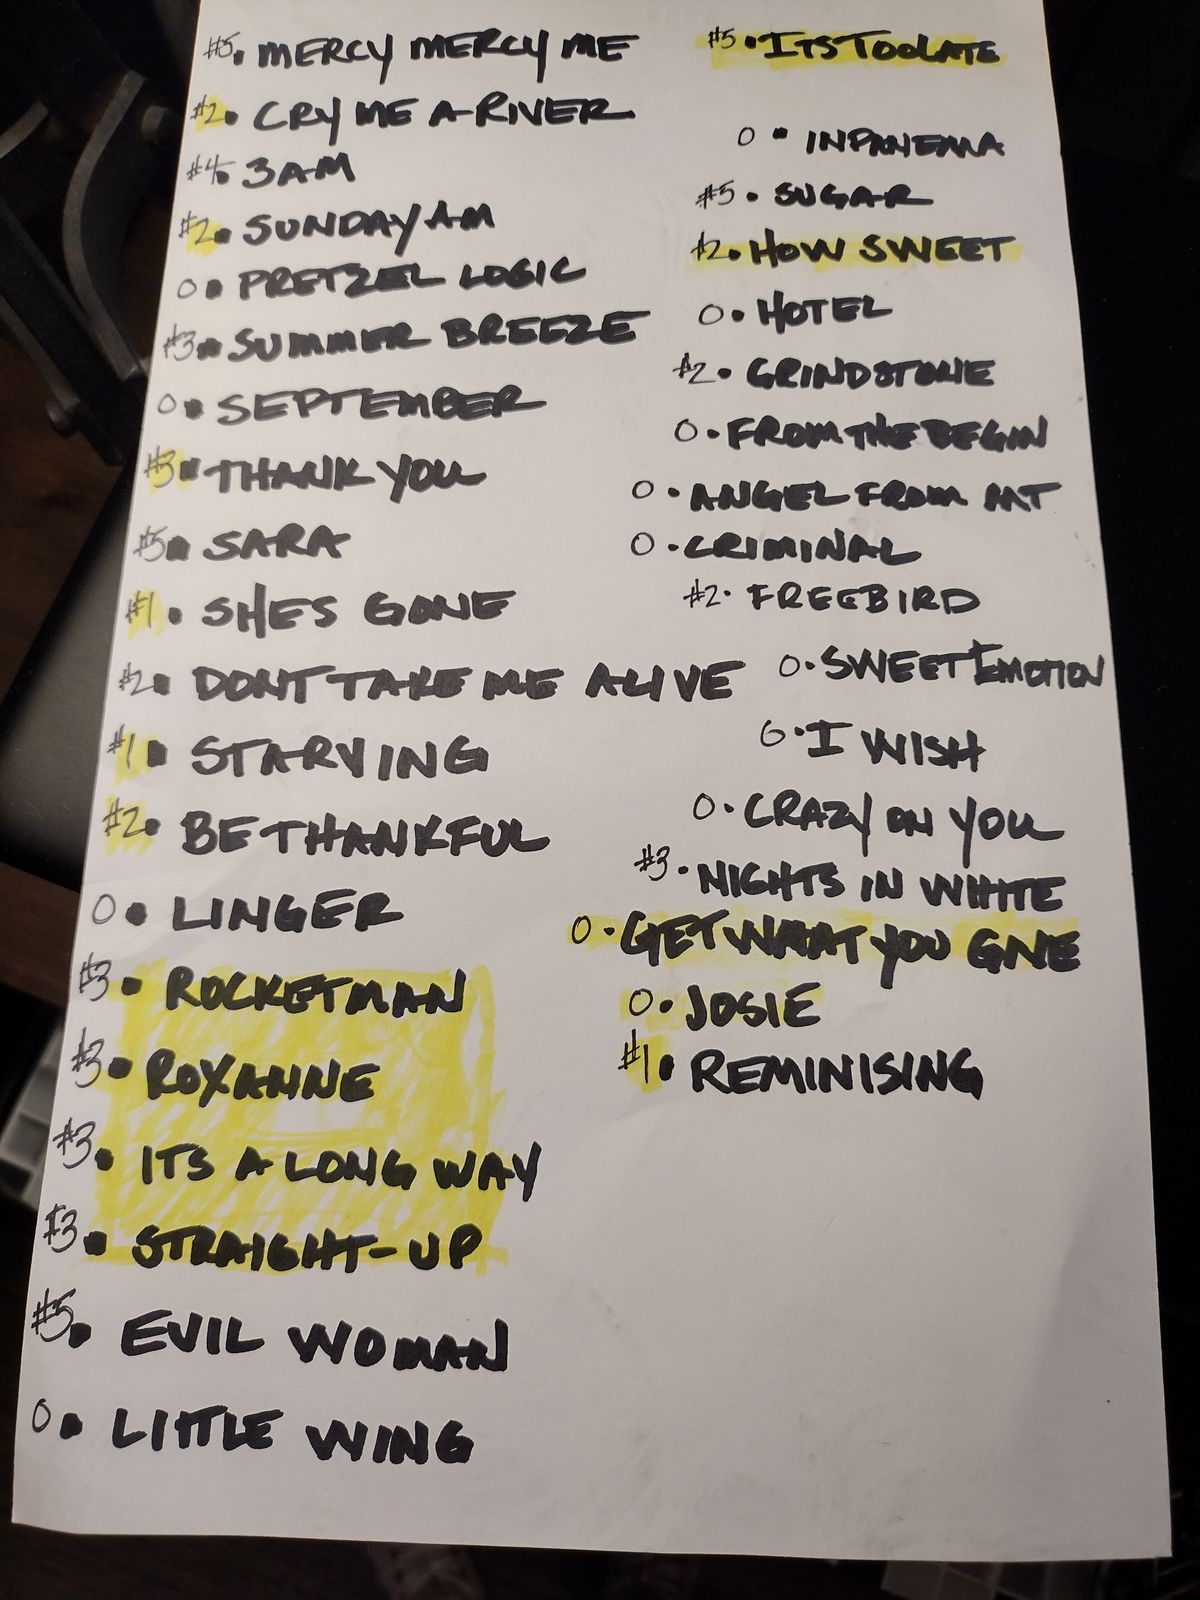 #5. MERCY MERCY ME
#2. CRY ME A RIVER
#4. 3AM
#2. SUNDAY AM
0. PRETZEL LOGIC
#3. SUMMER BREEZE
0. SEPTEMBER
#3. THANK YOU
#5. SARA
#1. SHES GONE
#2. DONT TAKE ME ALIVE
#1. STARVING
#2. BE THANKFUL
0. LINGER
#3. ROCKETMAN
#3. ROXANNE
#3. ITS A LONG WAY
#3. STRAIGHT-UP
#5. EVIL WOMAN
0. LITTLE WING
#5. ITS TOO LATE
0. INPANEMA
#5. SUGAR
#2. HOW SWEET
0. HOTEL
#2. GRINDSTONE
0. FROM THE BEGIN
0. ANGEL FROM MT
0. CRIMINAL
#2. FREEBIRD
0. SWEET EMOTION
0. I WISH
0. CRAZY ON YOU
#3. NIGHTS IN WHITE
0. GET WHAT YOU GIVE
0. JOSIE
#1. REMINISING